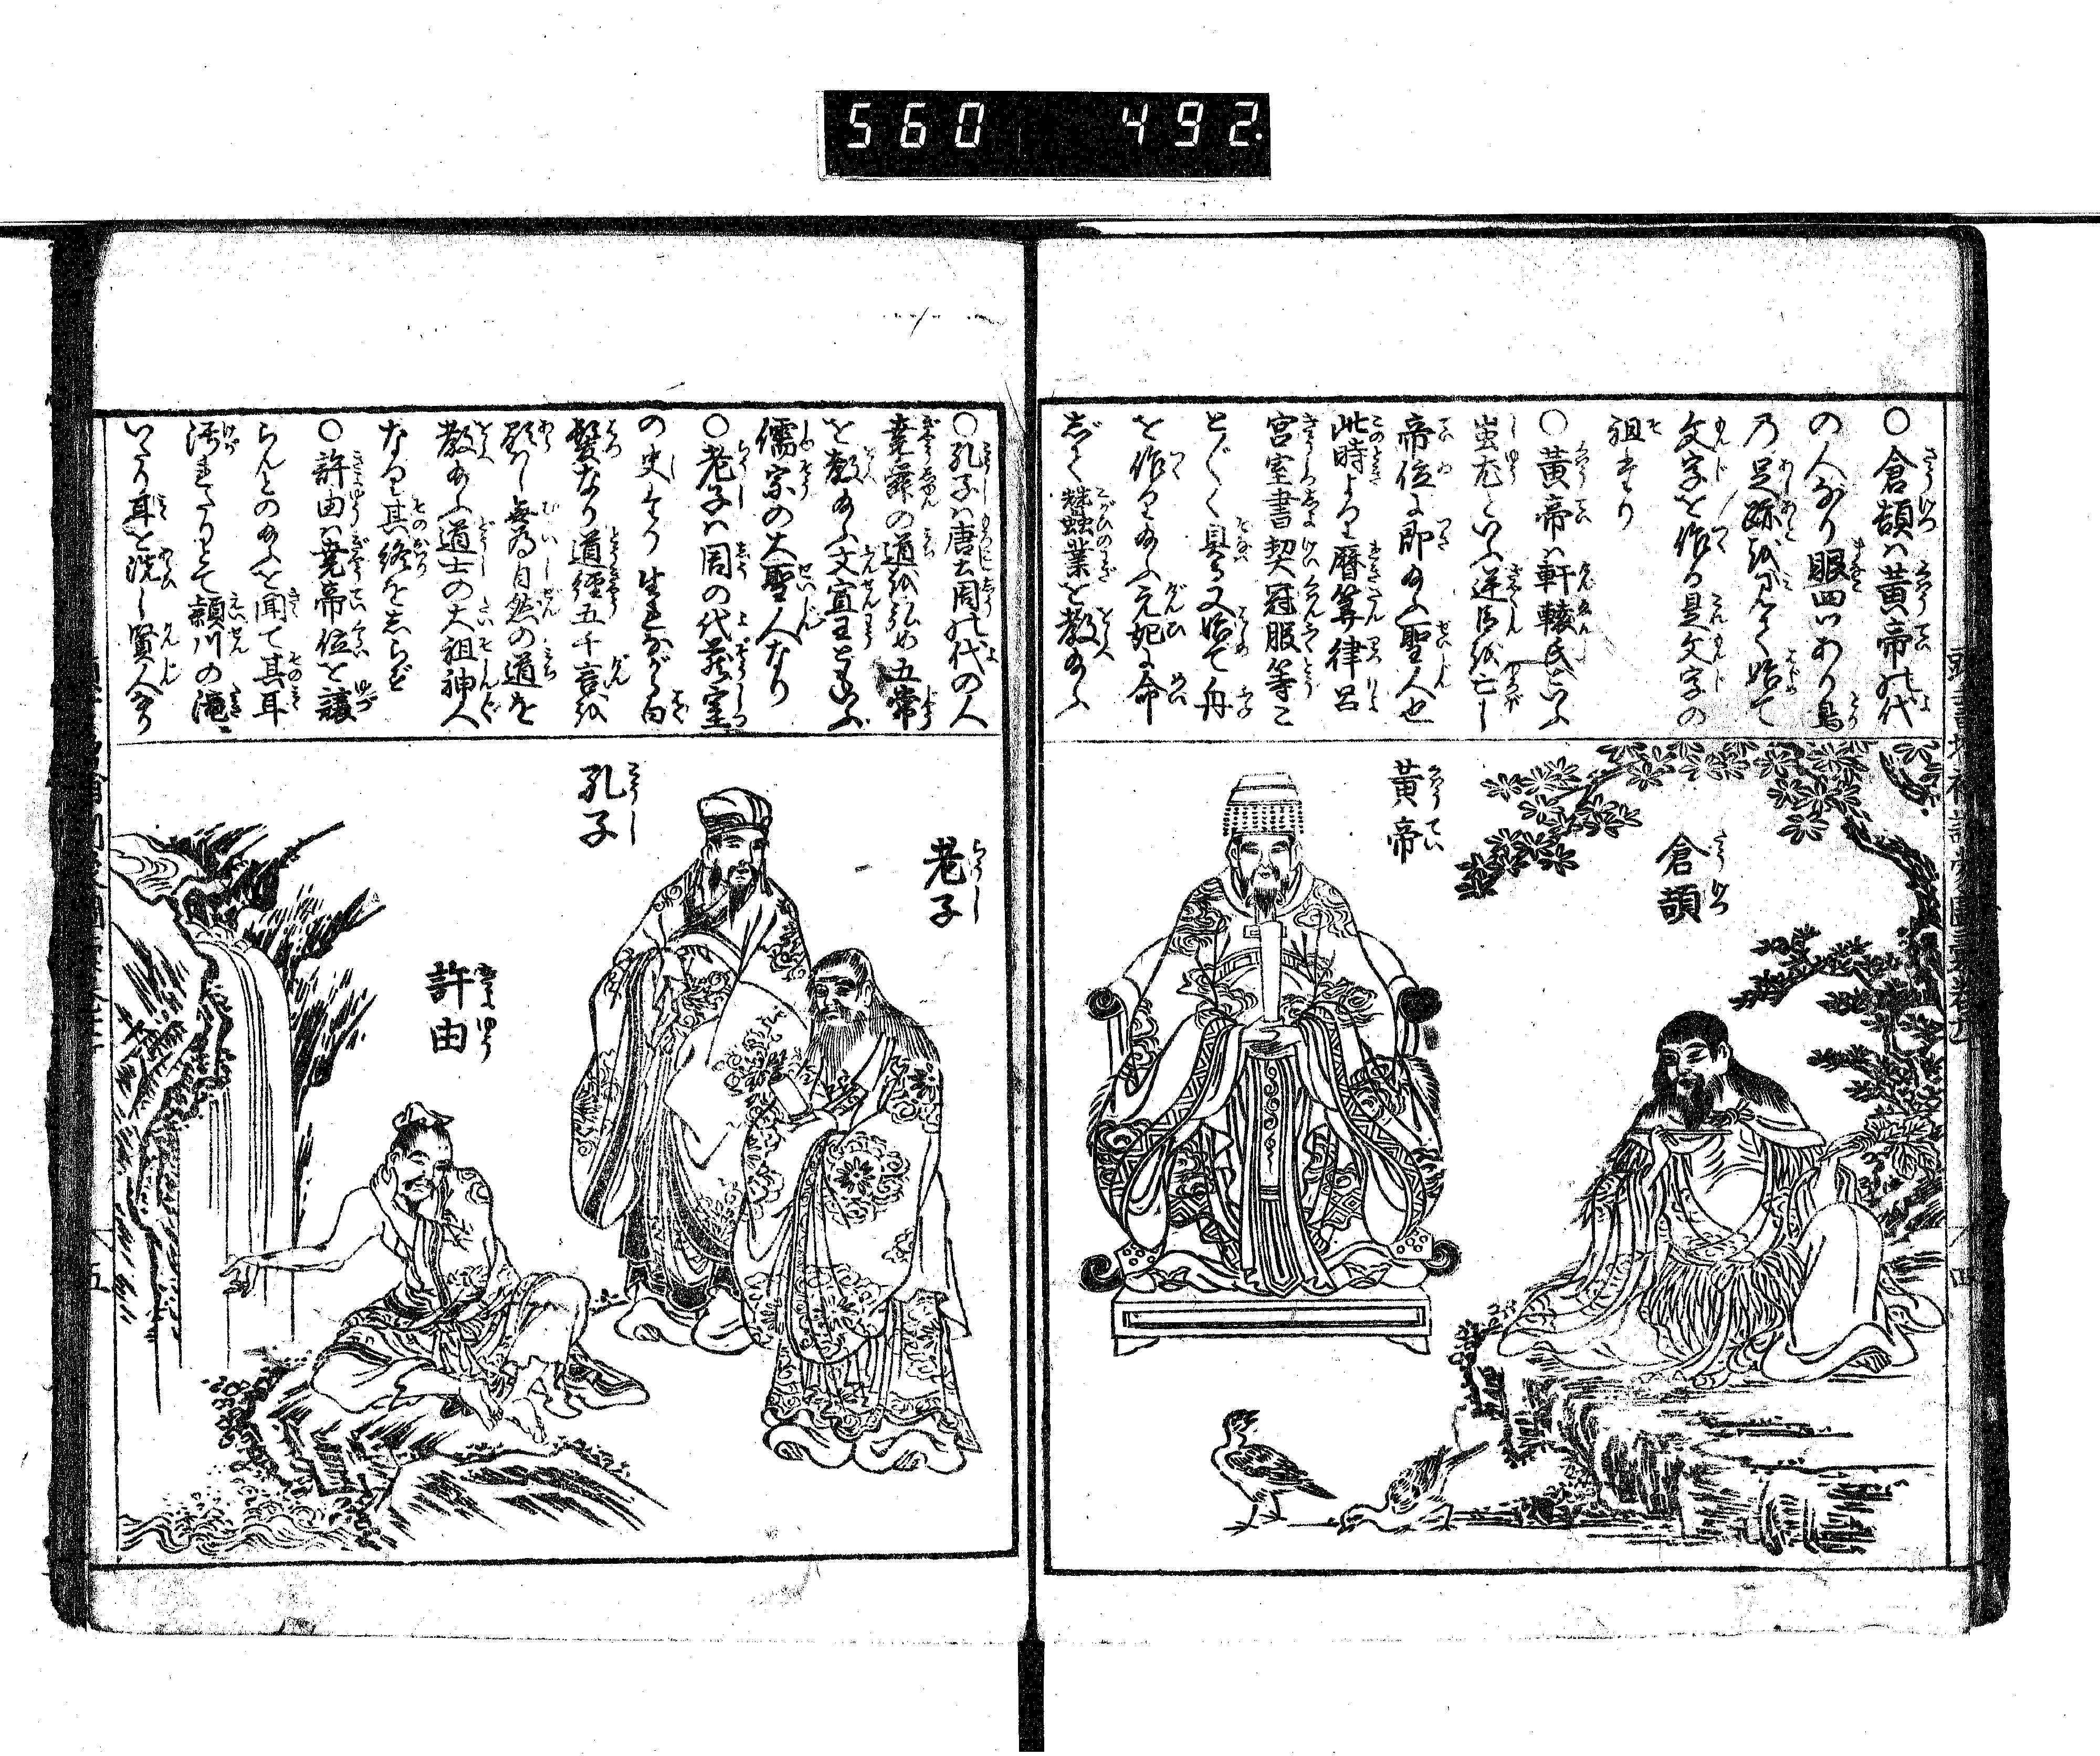 560 492
○倉頡ハ黄帝の代
の人なり眼四つあり鳥
乃足跡を見て始て
文字を作る是文字の
祖なり
○黄帝ハ軒轅氏といふ
蚩尤といふ逆臣を亡し
帝位に即給ふ聖人也
此時より暦算律呂
宮室書契冠服等こ
とごとく具る又始て舟
を作り給ふ元妃に命
じて蠶業を教給ふ
黄帝
くわうてい
倉頡
さうけつ
四
○孔子ハ唐土周の代の人
堯舜の道を弘め五常
を教給ふ文宣王ともいふ
儒宗の大聖人なり
○老子ハ周の代蔵室
の史なり生れながら白
髪なり道經五千言を
顕し無為自然の道を
教給ふ道士の大祖神人
なり其終をしらず
○許由ハ堯帝位を譲
らんとのたまふを聞て其耳
汚れたりとて頴川の滝
にいたり耳を洗し賢人なり
老子
らうし
孔子
こうし
許由
きよゆう
五